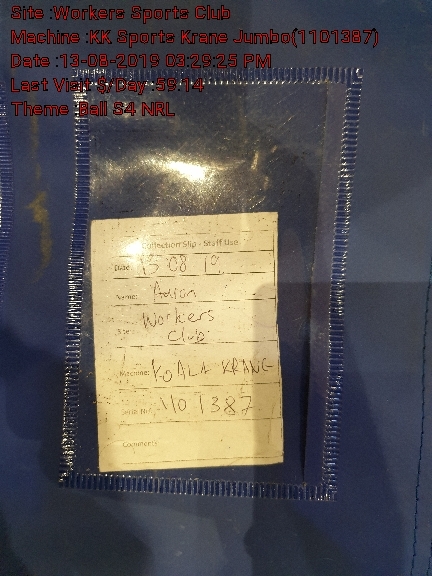 Site :Workers Sports Club
Machine :KK Sports Krane Jumbo(1101387)
Date :13-08-2019 03:29:25 PM
Last Visit $/Day :59.14
Theme :Ball S4 NRL
Collection Slip - Staff Use
Date: 13 08 19
Name: Aaron
Workers
Site: Club
Machine: KOALA KRANE
1101387
Comments: